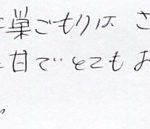 巣ごもりは さ
日でとても お